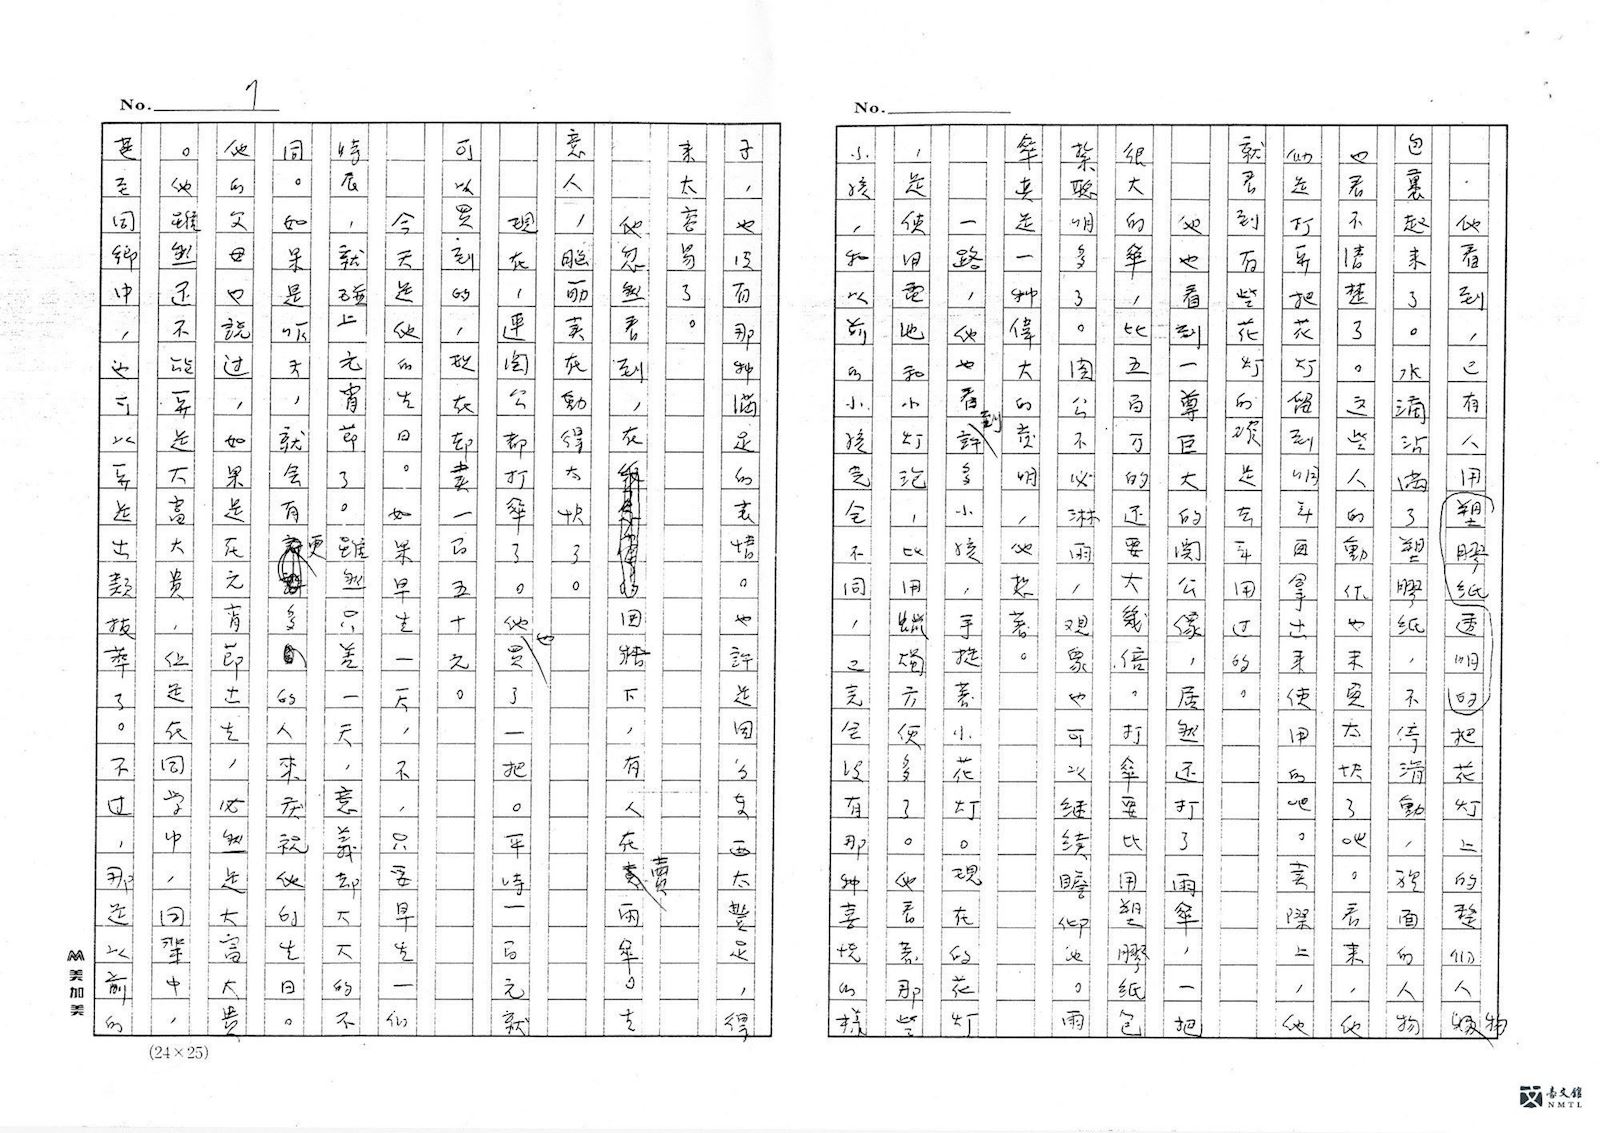 No.
．他看到，已有人用塑膠紙透明的把花灯上的整個人物
包裹起来了。水滴沾滿了塑膠紙，不停滑動，裡面的人物
也看不清楚了。这些人的動作也未免太快了吧。看来，他
们是打算把花灯留到明年再拿出来使用的吧。实際上，他
就看到有些花灯的確是去年用过的。
他也看到一尊巨大的関公像，居然还打了雨傘，一把
很大的傘，比五百万的还要大幾倍。打傘要比用塑膠紙包
紮聰明多了。関公不必淋雨，观眾也可以継續瞻仰他。雨
傘真是一种偉大的發明，他想著。
一路，他也看到許多小孩手提著小花灯。現在的花灯
，是使用電池和小灯泡，比用蠟燭方便多了。他看著那些
小孩，和以前的小孩完全不同，已完全没有那种喜悅的樣
No. 7
子，也没有那种滿足的表情。也許是因为东西太豐足，得
来太容易了。
他忽然看到，在圍牆下，有人在賣雨傘。生
意人，腦筋実在動得太快了。
現在，連関公都打傘了。他也買了一把。平時一百元就
可以買到的，現在却賣一百五十元。
今天是他的生日。如果早生一天，不，只要早生一个
時辰，就碰上元宵節了。雖然只差一天，意義却大大的不
同。如果是昨天，就会有更多的人來庆祝他的生日。
他的父母也說过，如果是在元宵節出生，必然是大富大貴
。他雖然还不能算是大富大貴，但是在同学中，同輩中，
甚至同鄉中，也可以算是出類拔萃了。不过，那是以前的
美加美
(24×25)
台文館
NMTL